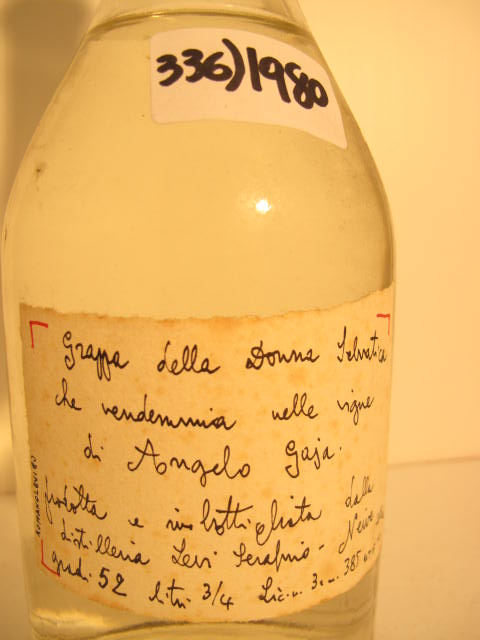 336) 1980
Grappa della Donna Selvatica
che vendemmia nelle vigne
di Angelo Gaja.
prodotta e imbottigliata dalla
distilleria Levi Serafino - Neive
gradi 52 litri 3/4 Lic. n. 3 385
ROMANO LEVI 80